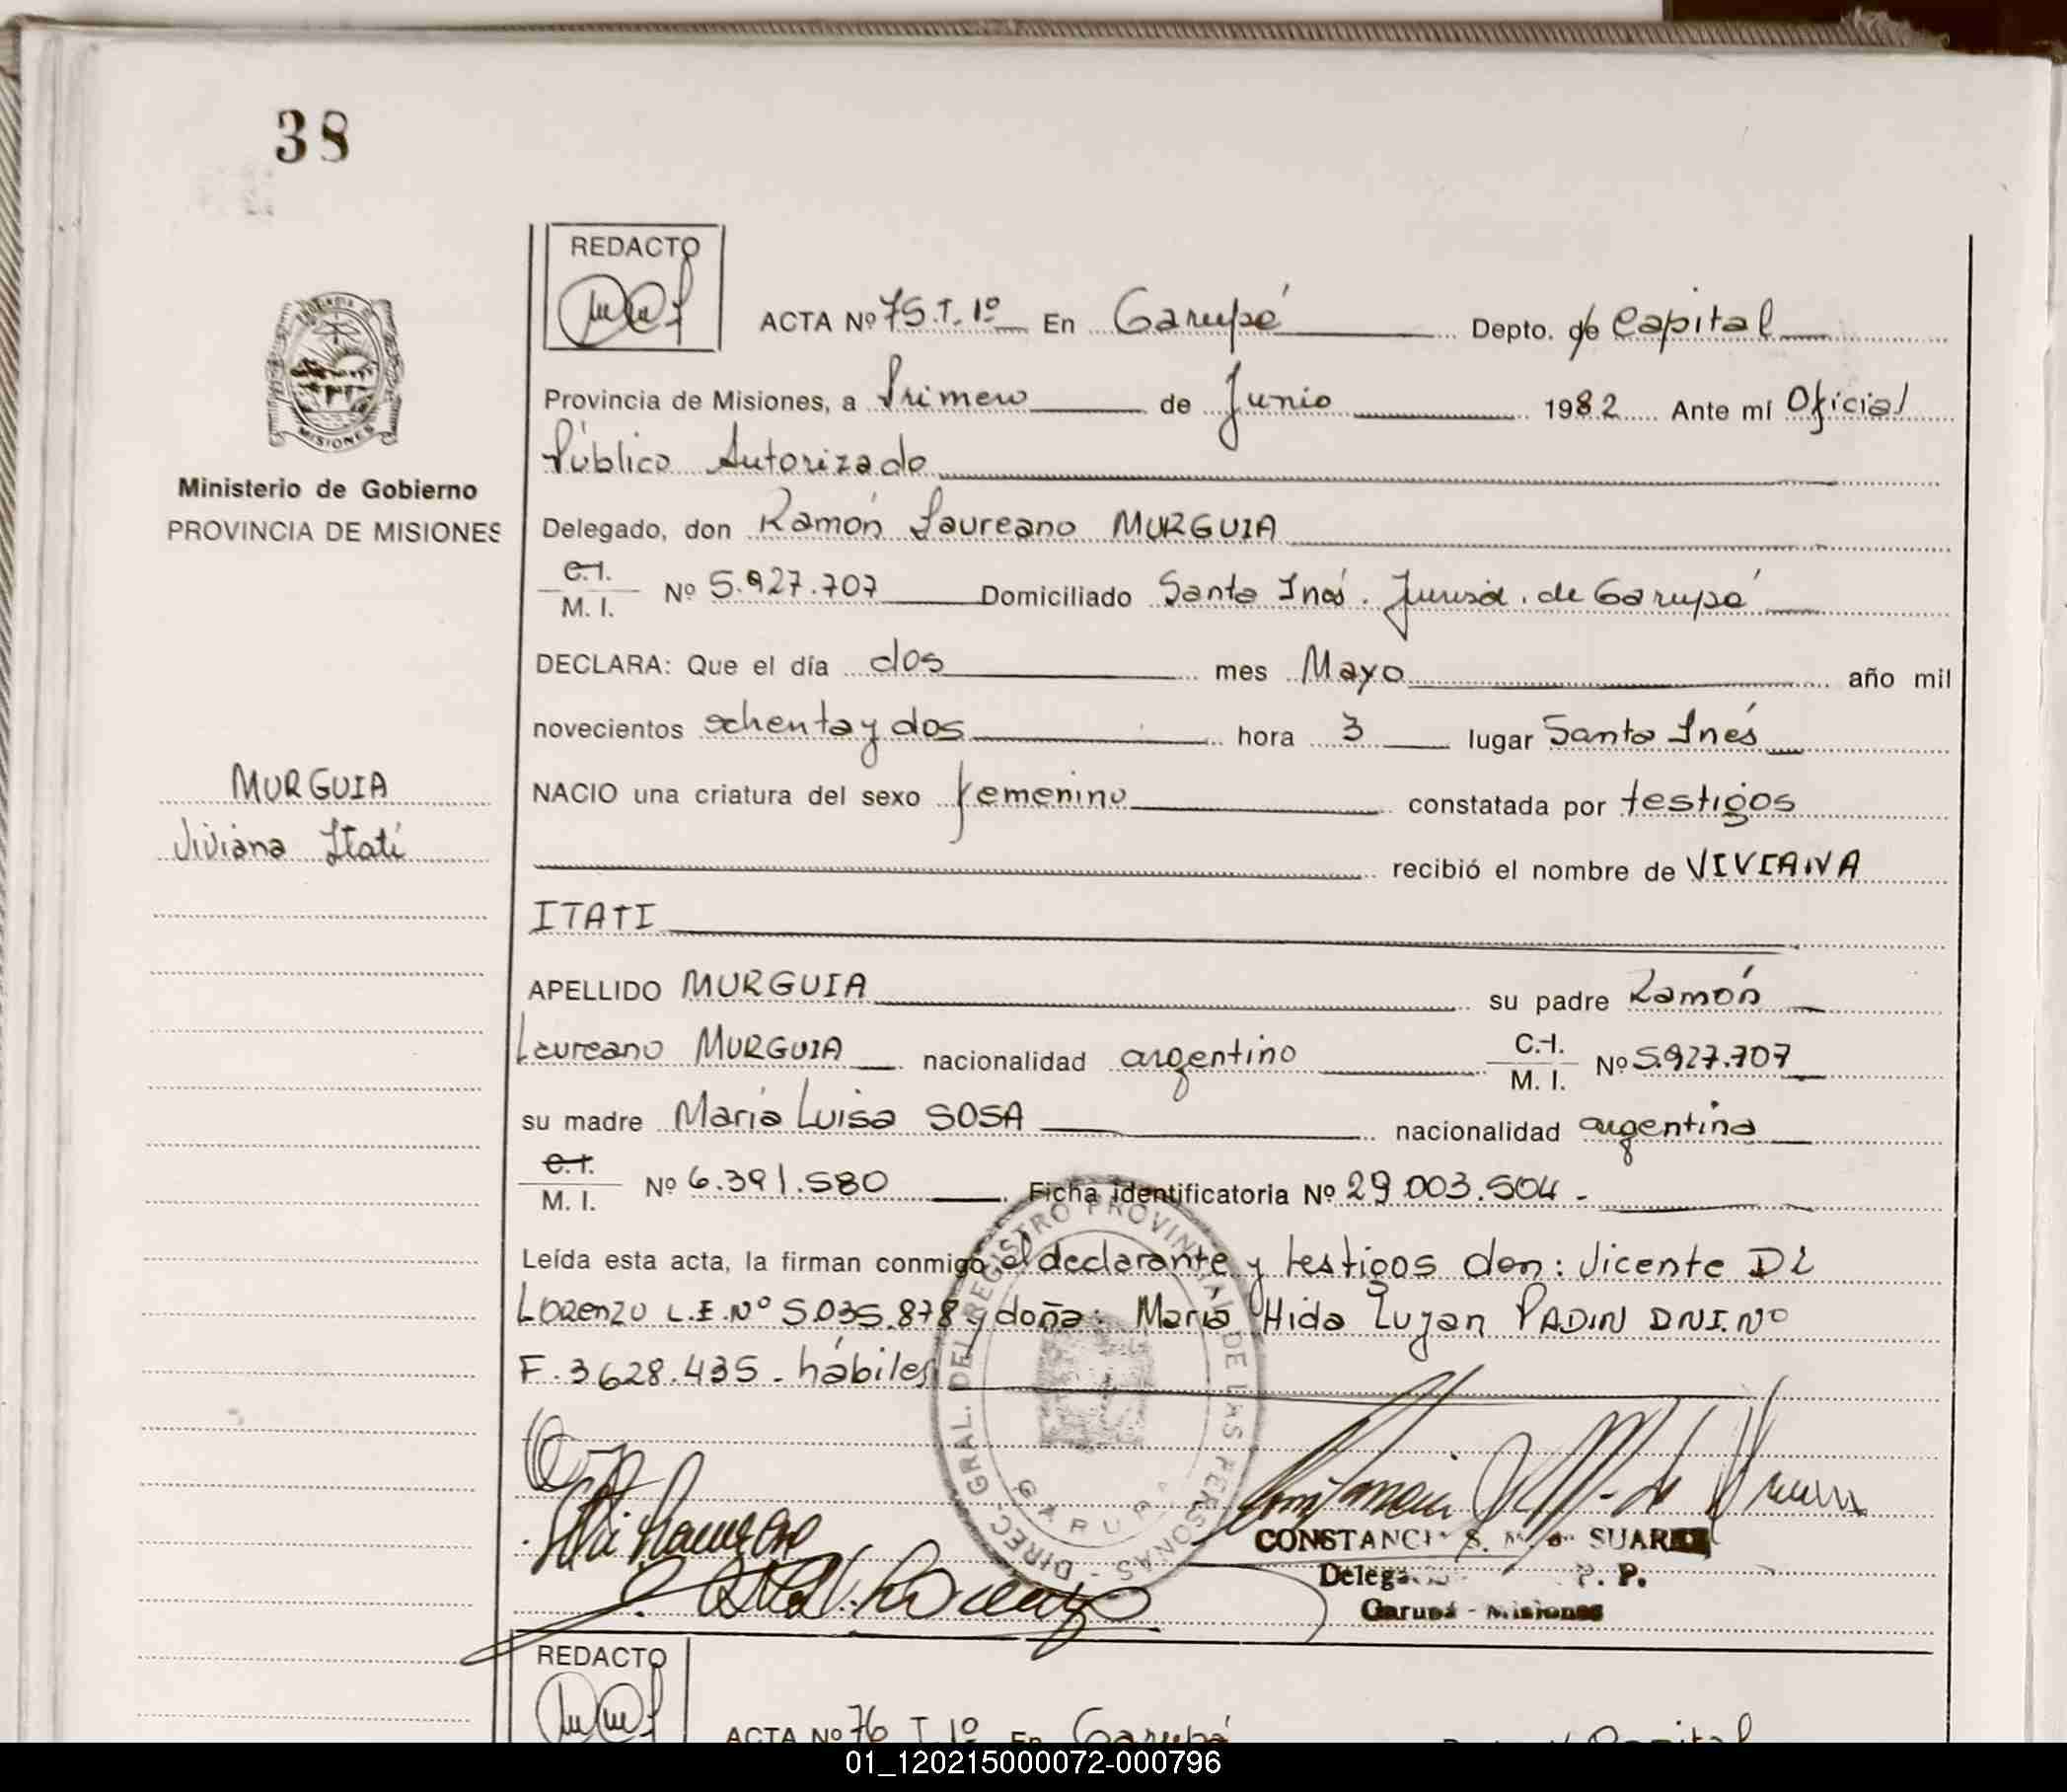 38
REDACTO
ACTA Nº 75.T.1º En Garupá Depto. de Capital
Provincia de Misiones, a Primero de Junio 1982 Ante mí Oficial
Público Autorizado
Ministerio de Gobierno
PROVINCIA DE MISIONES
MISIONES
Delegado, don Ramón Laureano MURGUIA
C.I.
M. I. Nº 5.927.707 Domiciliado Santa Inés. Jurisd. de Garupá
DECLARA: Que el día dos mes Mayo año mil
novecientos ochenta y dos hora 3 lugar Santa Inés
MURGUIA
Viviana Itatí
NACIO una criatura del sexo femenino constatada por testigos
recibió el nombre de VIVIANA
ITATI
APELLIDO MURGUIA su padre Ramón
Laureano MURGUIA nacionalidad argentino C.I.
M. I. Nº 5.927.707
su madre María Luisa SOSA nacionalidad argentina
C.I.
M. I. Nº 6.391.580 Ficha identificatoria Nº 29.003.504.-
Leída esta acta, la firman conmigo el declarante y testigos don: Vicente DI
LORENZO L.E.Nº 5.035.878 y doña: María Hida Lujan PADIN DNI.Nº
F.3628.435. hábiles
DIREC. GRAL. DEL REGISTRO PROVINCIAL DE LAS PERSONAS -
GARUPA
CONSTANCIA S. SUAREZ
P. P.
Garupá - Misiones
REDACTO
ACTA Nº 76 T.1º En Garupá Capital
01_120215000072-000796